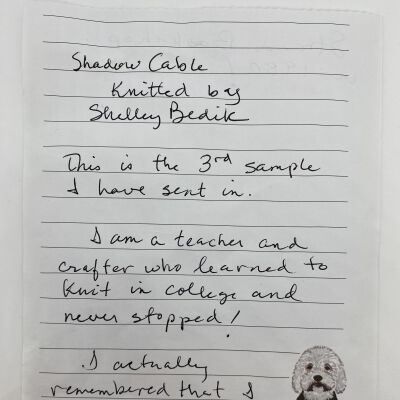 Shadow Cable
Knitted by
Shelley Bedik
This is the 3rd sample
I have sent in.
I am a teacher and
crafter who learned to
knit in college and
never stopped!
I actually
remembered that I